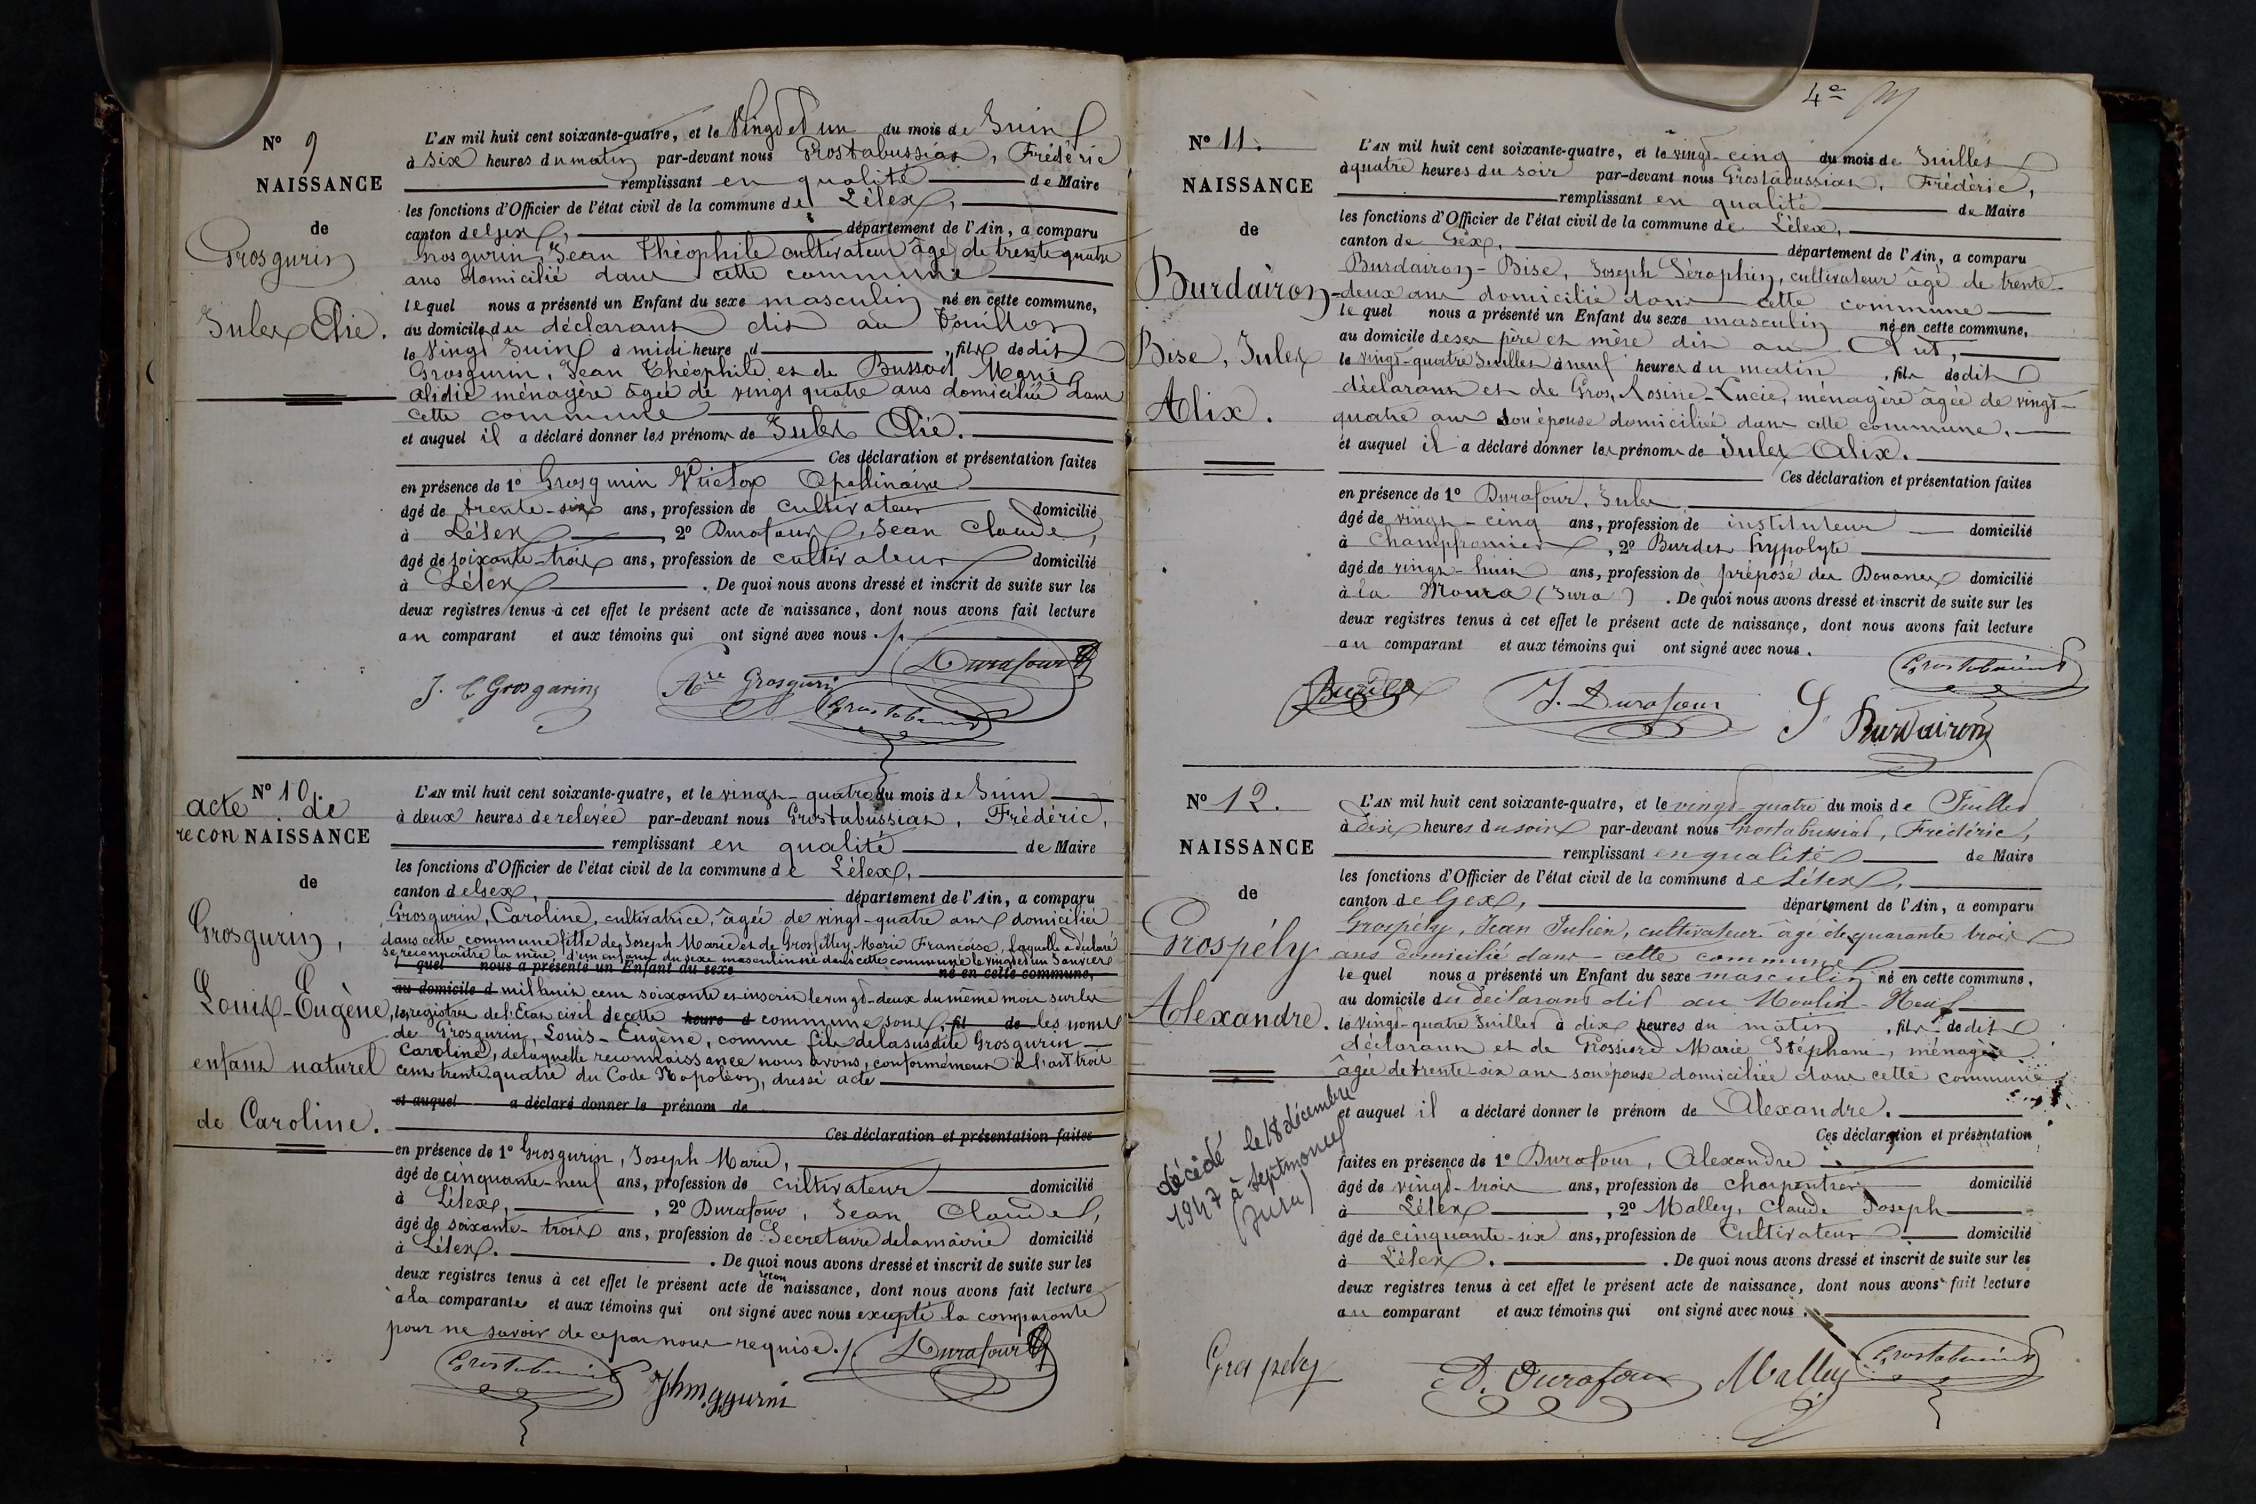 N° 9
NAISSANCE
de
Grosgurin
Jules Elie.
L'AN mil huit cent soixante-quatre, et le Vingt et un du mois de Juin
à six heures du matin par-devant nous Grostabussiat, Frédéric
remplissant en qualité de Maire
les fonctions d'Officier de l'état civil de la commune de Lélex,
canton de Gex, département de l'Ain, a comparu
Grosgurin, Jean Théophile cultivateur âgé de trente quatre
ans domicilié dans cette commune
lequel nous a présenté un Enfant du sexe masculin né en cette commune,
au domicile du déclarant dit au
le Vingt Juin à midi heure d , fils dudit
Grosgurin, Jean Théophile et de Bussod Marie
alidie ménagère âgée de vingt quatre ans domiciliée dans
cette commune
et auquel il a déclaré donner les prénoms de Jules Elie.
Ces déclaration et présentation faites
en présence de 1° Grosgurin Victor Apollinaire
âgé de trente-six ans, profession de cultivateur domicilié
à Lélex , 2° Durafour, Jean Claude,
âgé de soixante-trois ans, profession de cultivateur domicilié
à Lélex . De quoi nous avons dressé et inscrit de suite sur les
deux registres tenus à cet effet le présent acte de naissance, dont nous avons fait lecture
au comparant et aux témoins qui ont signé avec nous ./.
J. T Grosgurin Are Grosgurin Durafour
Grostabussiat
N° 10.
acte de
reconNAISSANCE
de
Grosgurin,
Louis-Eugène,
enfant naturel
de Caroline.
L'AN mil huit cent soixante-quatre, et le vingt-quatre du mois de Juin
à deux heures de relevée par-devant nous Grostabussiat, Frédéric,
remplissant en qualité de Maire
les fonctions d'Officier de l'état civil de la commune de Lélex,
canton de Gex, département de l'Ain, a comparu
Grosgurin, Caroline, cultivatrice, âgée de vingt-quatre ans domiciliée
dans cette commune fille de Joseph Marie et de Grosfilley Marie Françoise, laquelle a déclaré
se reconnaître la mère d'un enfant du sexe masculin né dans cette commune le vingt et un Janvier
l quel nous a présenté un Enfant du sexe né en cette commune,
au domicile d mil huit cent soixante et inscrit le vingt-deux du même mois sur les
registres de l'Etat civil de cette heure d commune sous, fil de les noms
de Grosgurin, Louis-Eugène, comme fils de la susdite Grosgurin
Caroline, de laquelle reconnaissance nous avons, conformément à l'art trois
cent trente-quatre du Code Napoléon, dressé acte
et auquel a déclaré donner le prénom de
Ces déclaration et présentation faites
en présence de 1° Grosgurin, Joseph Marie,
âgé de cinquante-neuf ans, profession de cultivateur domicilié
à Lélex, , 2° Durafour, Jean Claude,
âgé de soixante-trois ans, profession de Secrétaire de la mairie domicilié
à Lélex. . De quoi nous avons dressé et inscrit de suite sur les
deux registres tenus à cet effet le présent acte de recon naissance, dont nous avons fait lecture
à la comparante et aux témoins qui ont signé avec nous excepté la comparante
pour ne savoir de ce par nous requise ./. Durafour
Grostabussiat
4e
N° 11.
NAISSANCE
de
Burdairon-
Bise, Jules
Alix.
L'AN mil huit cent soixante-quatre, et le vingt-cinq du mois de Juillet
à quatre heures du soir par-devant nous Grostabussiat, Frédéric,
remplissant en qualité de Maire
les fonctions d'Officier de l'état civil de la commune de Lélex,
canton de Gex, département de l'Ain, a comparu
Burdairon-Bise, Joseph Séraphin, cultivateur âgé de trente-
deux ans domicilié dans cette commune
lequel nous a présenté un Enfant du sexe masculin né en cette commune,
au domicile de ses père et mère dit au
le vingt-quatre Juillet à neuf heures du matin , fils dudit
déclarant et de Gros, Rosine-Lucie, ménagère âgée de vingt-
quatre ans son épouse domiciliée dans cette commune,
et auquel il a déclaré donner les prénoms de Jules Alix.
Ces déclaration et présentation faites
en présence de 1° Durafour, Jules
âgé de vingt-cinq ans, profession de instituteur domicilié
à Champfromier , 2° Burdet hypolyte
âgé de vingt-huit ans, profession de préposé des Douanes domicilié
à la Moura (Jura) . De quoi nous avons dressé et inscrit de suite sur les
deux registres tenus à cet effet le présent acte de naissance, dont nous avons fait lecture
au comparant et aux témoins qui ont signé avec nous .
Grostabussiat
J. Durafour
S Burdairon
N° 12.
NAISSANCE
de
Grospély
Alexandre.
décédé le 18 décembre
1947 à Septmoncel
(Jura)
L'AN mil huit cent soixante-quatre, et le vingt-quatre du mois de Juillet
à six heures du soir par-devant nous Grostabussiat, Frédéric,
remplissant en qualité de Maire
les fonctions d'Officier de l'état civil de la commune de Lélex,
canton de Gex, département de l'Ain, a comparu
Grospély, Jean Julien, cultivateur âgé de quarante trois
ans domicilié dans cette commune
lequel nous a présenté un Enfant du sexe masculin né en cette commune,
au domicile du déclarant dit au Moulin-Neuf
le vingt-quatre Juillet à dix heures du matin , fils dudit
déclarant et de Grossiord Marie Stéphanie, ménagère
âgée de trente-six ans son épouse domiciliée dans cette commune
et auquel il a déclaré donner le prénom de Alexandre.
Ces déclaration et présentation
faites en présence de 1° Durafour, Alexandre
âgé de vingt-trois ans, profession de charpentier domicilié
à Lélex , 2° Malley, Claude Joseph
âgé de cinquante-six ans, profession de Cultivateur domicilié
à Lélex. . De quoi nous avons dressé et inscrit de suite sur les
deux registres tenus à cet effet le présent acte de naissance, dont nous avons fait lecture
au comparant et aux témoins qui ont signé avec nous .
Grospely A. Durafour Malley Grostabussiat